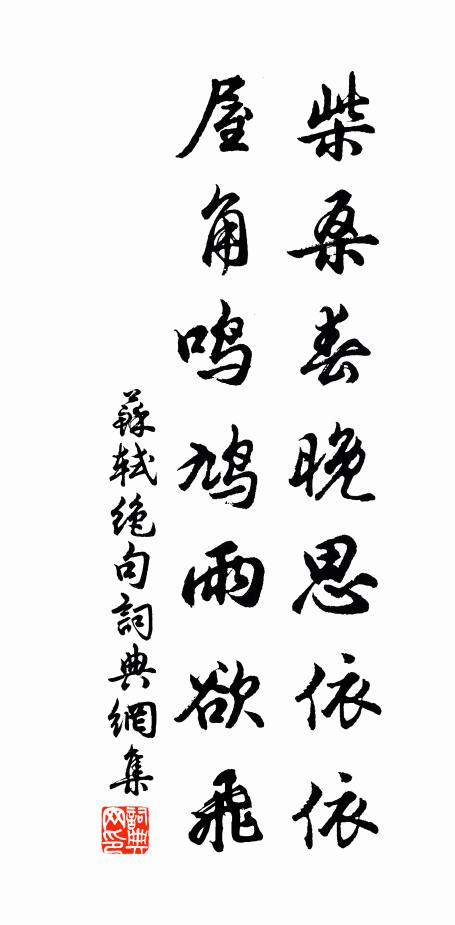 柴桑春晚思依依
屋角鳴鳩雨欲飛
蘇軾絕句詞典網集
詞典網印